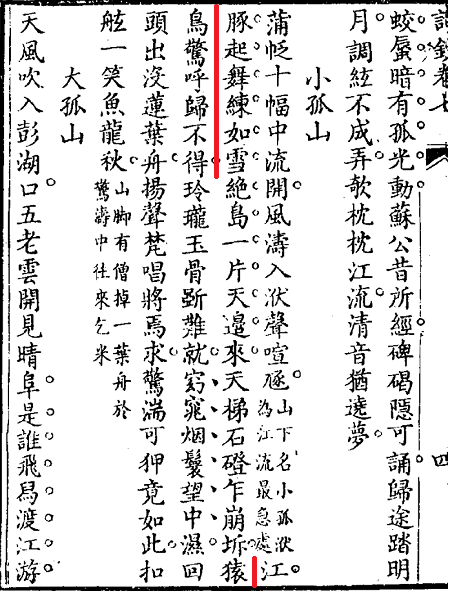 蛟蜃暗有孤光動蘇公昔所經碑碣隱可誦歸途踏明
月調絃不成弄欹枕枕江流清音猶遶夢
小孤山
蒲帆十幅中流開風濤入洑聲喧豗山下名小孤洑為江流最急處江
豚起舞練如雪絶島一片天邊來天梯石磴乍崩坼猿
鳥驚呼歸不得玲瓏玉骨斲難就窈窕烟鬟望中濕回
頭出沒蓮葉舟揚聲梵唱將焉求驚湍可狎竟如此扣
舷一笑魚龍秋山脚有僧掉一葉舟於驚濤中往來乞米
大孤山
天風吹入彭湖口五老雲開見晴阜是誰飛舄渡江游